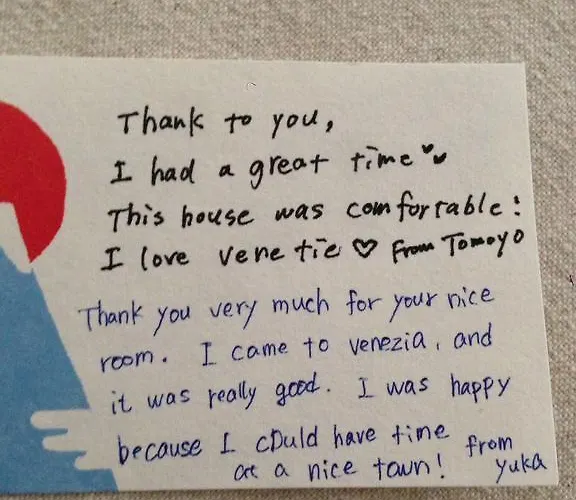 Thank to you,
I had a great time
This house was comfortable!
I love venetie ♡ from Tomoyo
Thank you very much for your nice
room. I came to venezia, and
it was really good. I was happy
because I could have time from
at a nice town! yuka